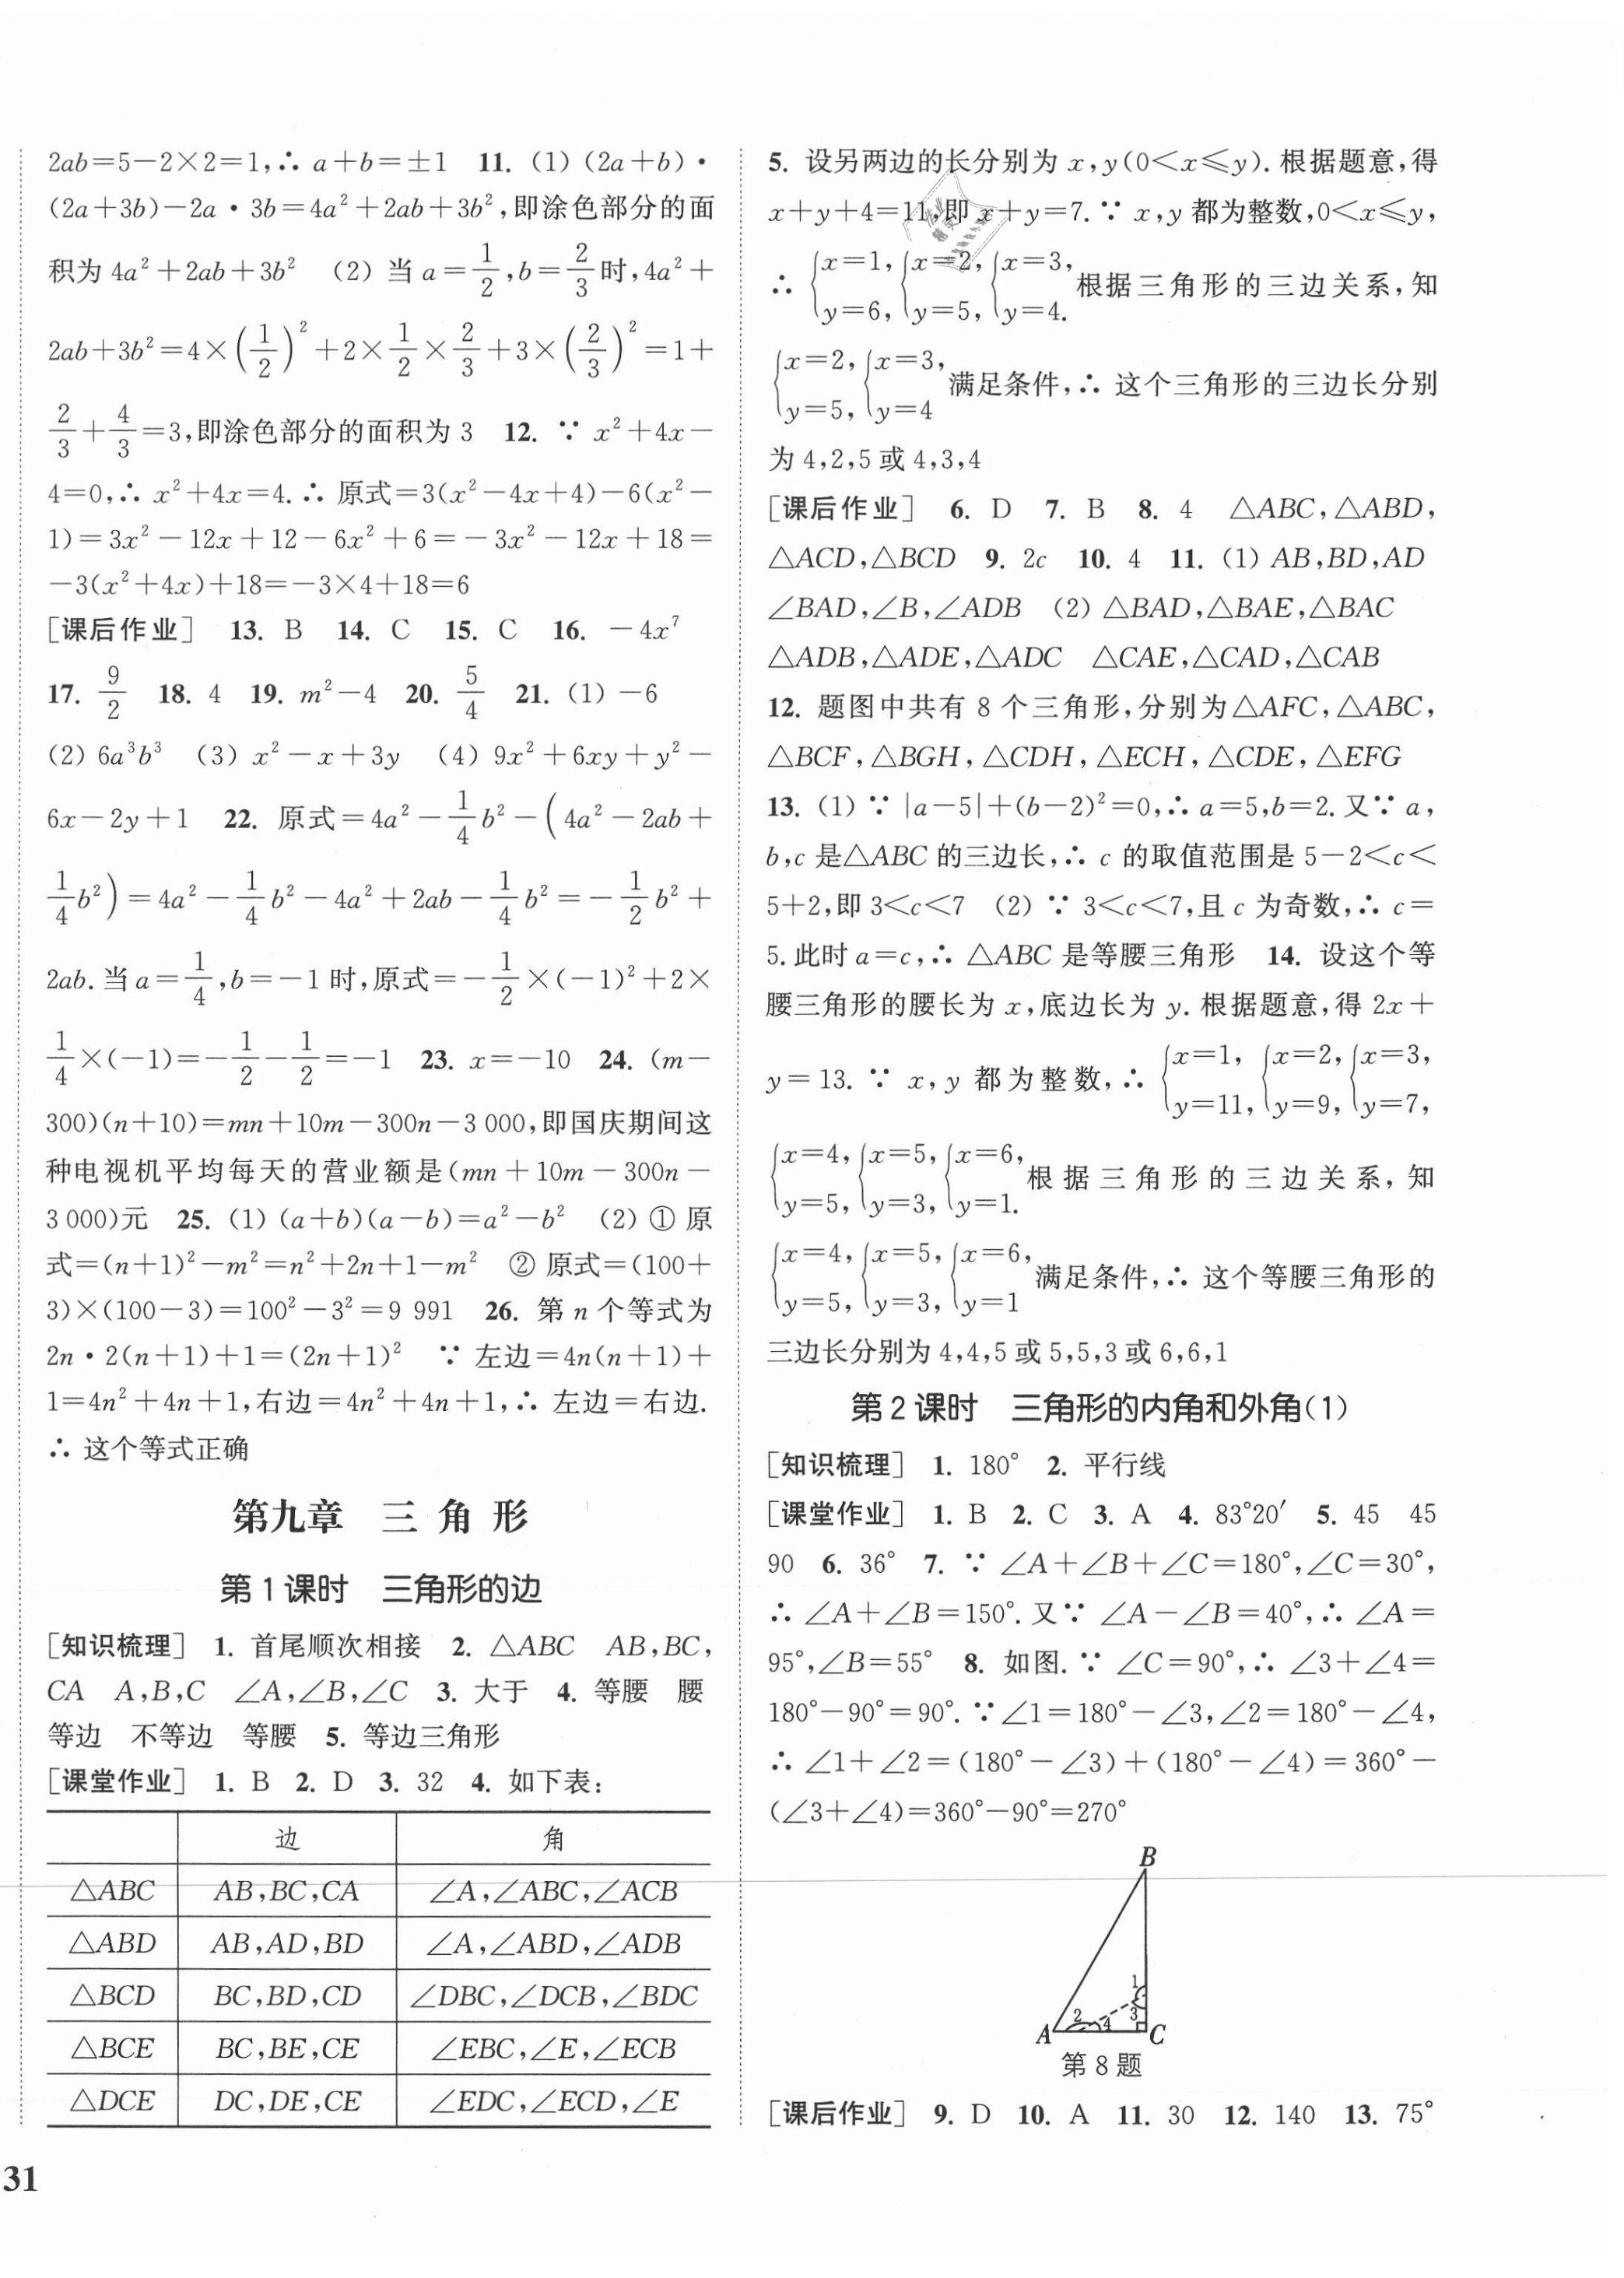 2ab=5-2×2=1,∴ a+b=±1 11. (1) (2a+b)·
(2a+3b)-2a·3b=4a²+2ab+3b²,即涂色部分的面
积为 4a²+2ab+3b² (2) 当 a=1/2,b=2/3时,4a²+
2ab+3b²=4×(1/2)²+2×1/2×2/3+3×(2/3)²=1+
2/3+4/3=3,即涂色部分的面积为 3 12. ∵ x²+4x-
4=0,∴ x²+4x=4.∴ 原式=3(x²-4x+4)-6(x²-
1)=3x²-12x+12-6x²+6=-3x²-12x+18=
-3(x²+4x)+18=-3×4+18=6
[课后作业] 13. B 14. C 15. C 16. -4x⁷
17. 9/2 18. 4 19. m²-4 20. 5/4 21. (1) -6
(2) 6a³b³ (3) x²-x+3y (4) 9x²+6xy+y²-
6x-2y+1 22. 原式=4a²-1/4b²-(4a²-2ab+
1/4b²)=4a²-1/4b²-4a²+2ab-1/4b²=-1/2b²+
2ab.当 a=1/4,b=-1 时,原式=-1/2×(-1)²+2×
1/4×(-1)=-1/2-1/2=-1 23. x=-10 24. (m-
300)(n+10)=mn+10m-300n-3 000,即国庆期间这
种电视机平均每天的营业额是(mn+10m-300n-
3 000)元 25. (1) (a+b)(a-b)=a²-b² (2) ① 原
式=(n+1)²-m²=n²+2n+1-m² ② 原式=(100+
3)×(100-3)=100²-3²=9 991 26. 第 n 个等式为
2n·2(n+1)+1=(2n+1)² ∵ 左边=4n(n+1)+
1=4n²+4n+1,右边=4n²+4n+1,∴ 左边=右边.
∴ 这个等式正确
第九章 三 角 形
第 1 课时 三角形的边
[知识梳理] 1. 首尾顺次相接 2. △ABC AB,BC,
CA A,B,C ∠A,∠B,∠C 3. 大于 4. 等腰 腰
等边 不等边 等腰 5. 等边三角形
[课堂作业] 1. B 2. D 3. 32 4. 如下表:
边 角
△ABC AB,BC,CA ∠A,∠ABC,∠ACB
△ABD AB,AD,BD ∠A,∠ABD,∠ADB
△BCD BC,BD,CD ∠DBC,∠DCB,∠BDC
△BCE BC,BE,CE ∠EBC,∠E,∠ECB
△DCE DC,DE,CE ∠EDC,∠ECD,∠E
31
5. 设另两边的长分别为 x,y(0<x≤y).根据题意,得
x+y+4=11,即 x+y=7.∵ x,y 都为整数,0<x≤y,
∴ {x=1, y=6, {x=2, y=5, {x=3, y=4. 根据三角形的三边关系,知
{x=2, y=5, {x=3, y=4 满足条件,∴ 这个三角形的三边长分别
为 4,2,5 或 4,3,4
[课后作业] 6. D 7. B 8. 4 △ABC,△ABD,
△ACD,△BCD 9. 2c 10. 4 11. (1) AB,BD,AD
∠BAD,∠B,∠ADB (2) △BAD,△BAE,△BAC
△ADB,△ADE,△ADC △CAE,△CAD,△CAB
12. 题图中共有 8 个三角形,分别为△AFC,△ABC,
△BCF,△BGH,△CDH,△ECH,△CDE,△EFG
13. (1) ∵ |a-5|+(b-2)²=0,∴ a=5,b=2.又∵ a,
b,c 是△ABC 的三边长,∴ c 的取值范围是 5-2<c<
5+2,即 3<c<7 (2) ∵ 3<c<7,且 c 为奇数,∴ c=
5.此时 a=c,∴ △ABC 是等腰三角形 14. 设这个等
腰三角形的腰长为 x,底边长为 y.根据题意,得 2x+
y=13.∵ x,y 都为整数,∴ {x=1, y=11, {x=2, y=9, {x=3, y=7,
{x=4, y=5, {x=5, y=3, {x=6, y=1. 根据三角形的三边关系,知
{x=4, y=5, {x=5, y=3, {x=6, y=1 满足条件,∴ 这个等腰三角形的
三边长分别为 4,4,5 或 5,5,3 或 6,6,1
第 2 课时 三角形的内角和外角(1)
[知识梳理] 1. 180° 2. 平行线
[课堂作业] 1. B 2. C 3. A 4. 83°20′ 5. 45 45
90 6. 36° 7. ∵ ∠A+∠B+∠C=180°,∠C=30°,
∴ ∠A+∠B=150°.又∵ ∠A-∠B=40°,∴ ∠A=
95°,∠B=55° 8. 如图.∵ ∠C=90°,∴ ∠3+∠4=
180°-90°=90°.∵∠1=180°-∠3,∠2=180°-∠4,
∴ ∠1+∠2=(180°-∠3)+(180°-∠4)=360°-
(∠3+∠4)=360°-90°=270°
B
1
2 4 3
A C
第 8 题
[课后作业] 9. D 10. A 11. 30 12. 140 13. 75°